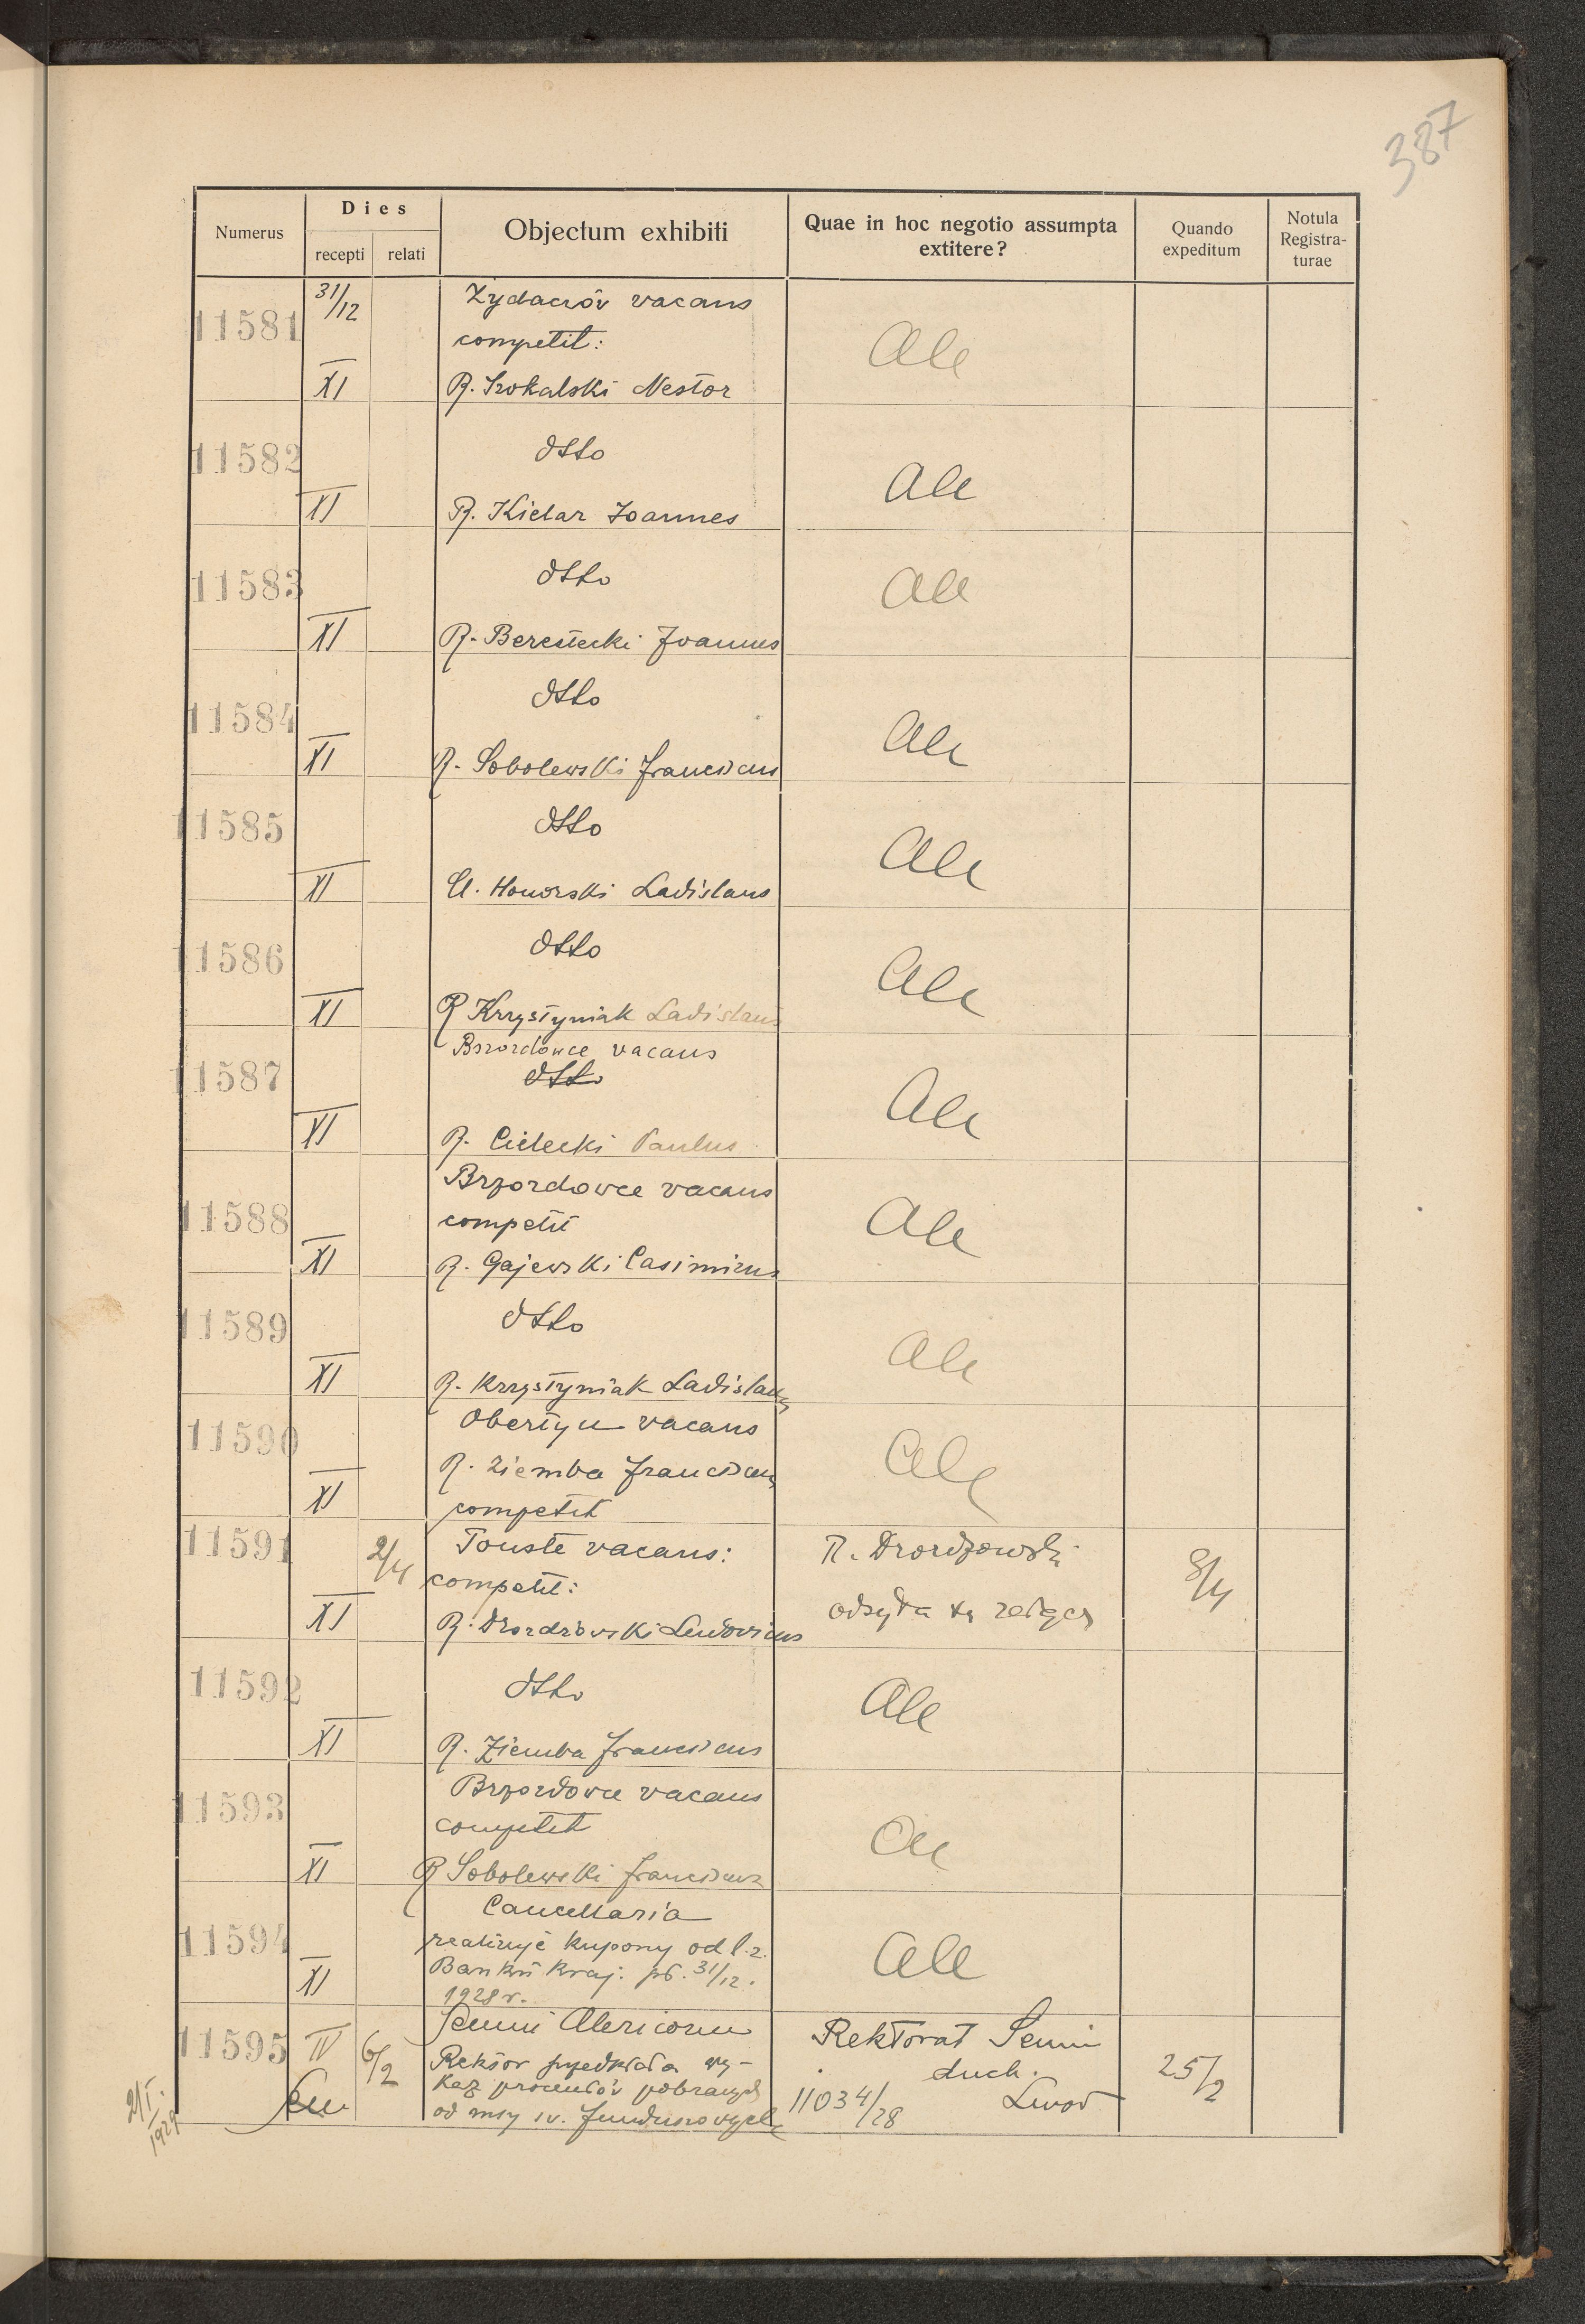 387
Numerus
Dies
recepti relati
Objectum exhibiti
Quae in hoc negotio assumpta
extitere?
Quando
expeditum
Notula
Registra-
turae
11581 31/12 Żydaczów vacans
competit:
XI R. Szokalski Nestor
Ale
11582 dtto
XI R. Kielar Joannes
Ale
11583 dtto
XI R. Berestecki Joannes
Ale
11584 dtto
XI R. Sobolewski Franciscus
Ale
11585 dtto
XI Cl. Honorski Ladislaus
Ale
11586 dtto
XI R Krzystyniak Ladislaus
Ale
11587 Brzozdowce vacans
dtto
XI R. Cielecki Paulus
Ale
11588 Brzozdowce vacans
competit
XI R. Gajewski Casimirus
Ale
11589 dtto
XI R. Krzystyniak Ladislaus
Ale
11590 Obertyn vacans
R. Ziemba Franciscus
XI competit
Ale
11591 2/4 Touste vacans:
competit:
XI R. Drozdzowski Ludovicus
R. Drozdzowski
odsyła
8/4
11592 dtto
XI R. Ziemba Franciscus
Ale
11593 Brzozdowce vacans
competit
XI R Sobolewski Franciscus
11594 Cancellaria
realizuje kupony od l.z.
XI Banku kraj. pł. 31/12.
1928 r.
Ale
11595 IV 6/2 Semin Clericorum
Rektor przedkłada wy-
kaz procentów pobranych
od mszy św. funduszowych
Rektorat Semin
duch.
11034/28 Lwów
25/2
2/I.
1929